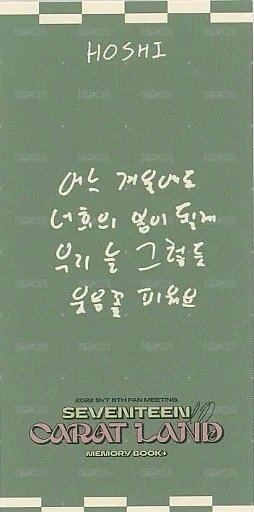 HOSHI
어느 겨울에도
너희의 염이 될게
우리 늘 그렇듯
웃음꽃 피워보
2022 SVT 6TH FAN MEETING
SEVENTEEN
CARAT LAND
MEMORY BOOK+